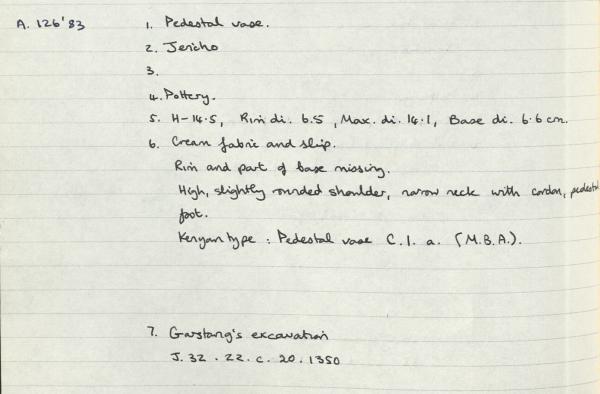 A. 126'83 1. Pedestal vase.
2. Jericho
3.
4. Pottery.
5. H-14.5, Rim di. 6.5, Max. di. 14.1, Base di. 6.6 cm.
6. Cream fabric and slip.
Rim and part of base missing.
High, slightly rounded shoulder, narrow neck with cordon, pedestal
foot.
Kenyan type : Pedestal vase C.1.a. (M.B.A.).
7. Garstang's excavation
J. 32 . 22. c. 20. 1350